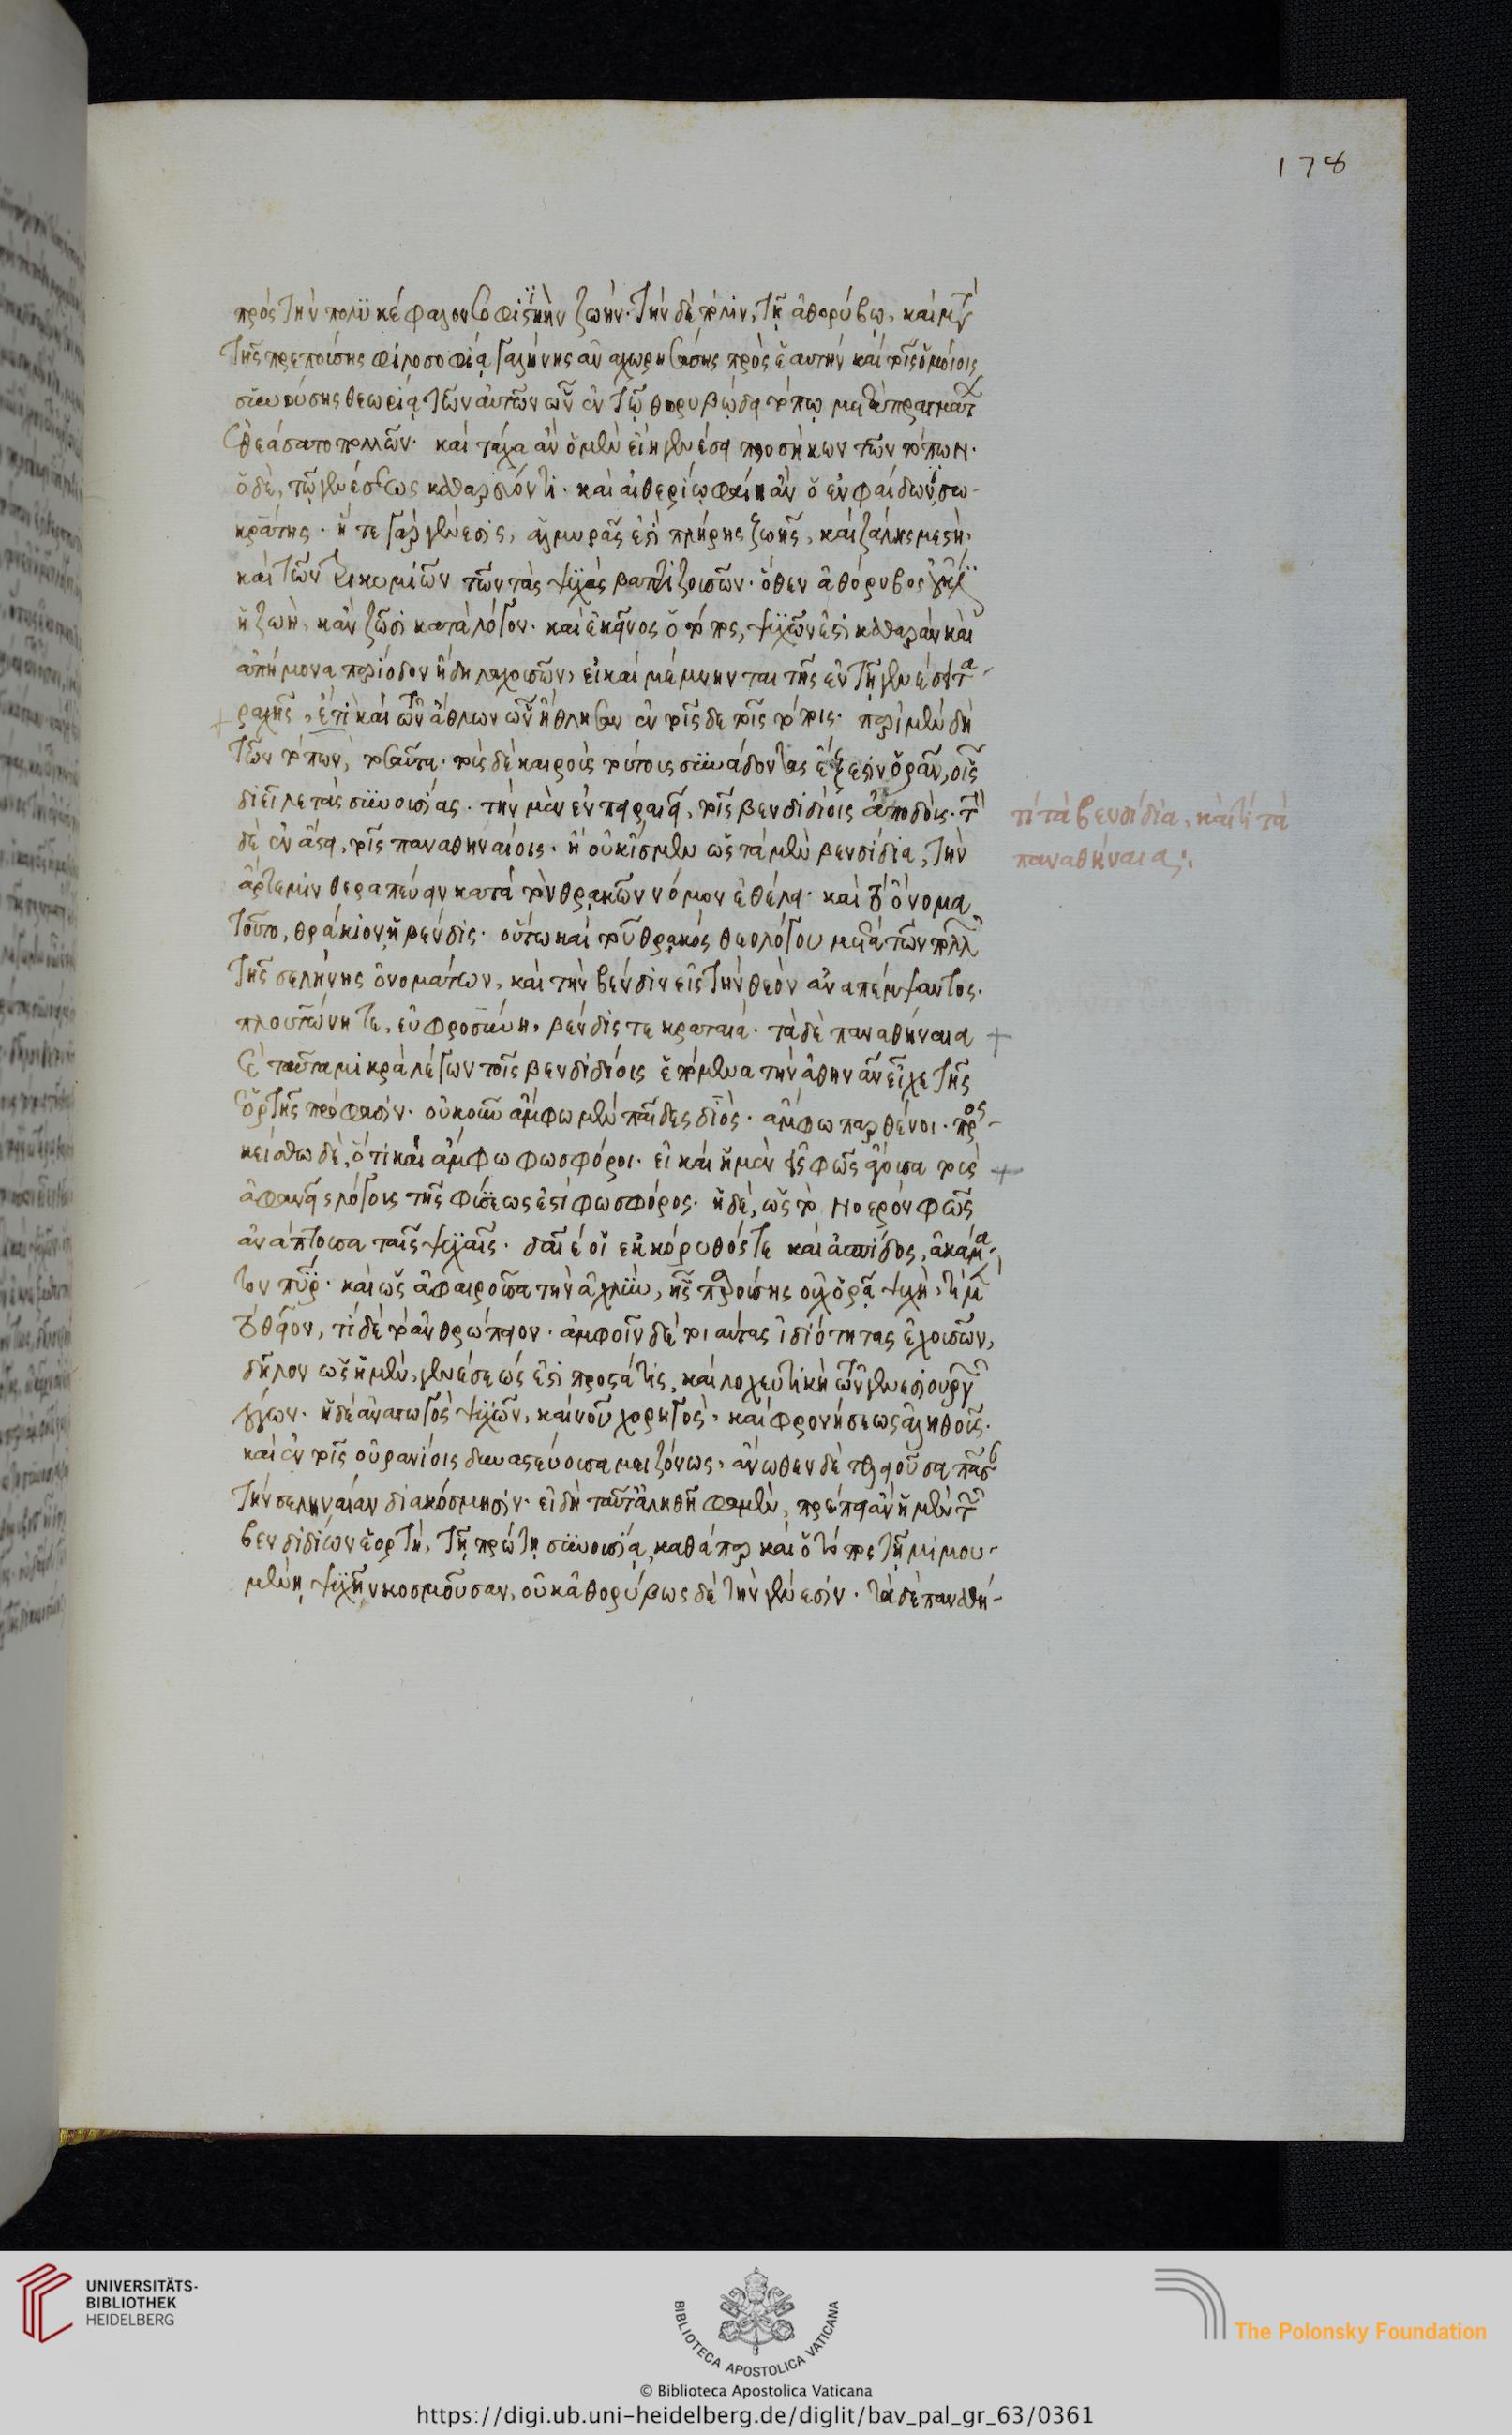 178
πρὸς τὴν πολϋκέφαλον σοφιστικὴν ζωήν. τὴν δὲ πάλιν, τῇ ἀθορύβῳ, καὶ μετὰ
τῆς πρεπούσης φιλοσοφίᾳ γαλήνης ἀναχωρησάσης πρὸς ἑαυτὴν καὶ τοῖς ὁμοίοις
συνούσης θεωρίᾳ τῶν αὐτῶν ὧν ἐν τῷ θορυβώδει τόπῳ μετὰ πραγμάτων
ἐθεάσατο πολλῶν. καὶ τάχα ἂν ὁ μὲν εἴη γενέσει προσήκων τῶν τόπων.
ὁ δὲ, τῷ γενέσεως καθαρεύοντι. καὶ αἰθερίῳ φαίη ἂν ὁ ἐν φαίδωνι σω-
κράτης. ἥ τε γὰρ γένεσις, ἁλμυρᾶς ἐστὶ πλήρης ζωῆς, καὶ ζάλης μεστὴ,
καὶ τῶν τρικυμιῶν τῶν τὰς ψυχὰς βαπτιζουσῶν. ὅθεν ἀθόρυβος
ἡ ζωὴ, κἂν ζῶσι κατὰ λόγον. καὶ ἐκεῖνος ὁ τόπος, ψυχῶν ἐστὶ καθαρὰν καὶ
ἀπήμονα περίοδον ἤδη λαχουσῶν, εἰ καὶ μέμνηνται τῆς ἐν τῇ γενέσει τα-
ραχῆς, ἔτι καὶ τῶν ἄθλων ὧν ἤθλησαν ἐν τοῖς δε τοῖς τόποις. περὶ μὲν δὴ
τῶν τόπων, τοσαῦτα. τοὺς δὲ καιροὺς τούτοις συνᾴδοντας ἔξεστιν ὁρᾶν, οἷς
διεῖλε τὰς συνουσίας. τὴν μὲν ἐν πειραιεῖ, τοῖς βενδιδίοις ἀποδούς. τὴν
δὲ ἐν ἄστει, τοῖς παναθηναίοις. ἢ οὐκ ἴσμεν ὡς τὰ μὲν βενδίδια, τὴν
ἄρτεμιν θεραπεύειν κατὰ τὸν θρᾳκῶν νόμον ἐθέλει. καὶ τὸ ὄνομα
τοῦτο, θράκιον ἡ βένδις. οὕτω καὶ τοῦ θρᾳκὸς θεολόγου μετὰ τῶν πολλῶν
τῆς σελήνης ὀνομάτων, καὶ τὴν βένδιν εἰς τὴν θεὸν ἀναπέμψαντος.
πλουτώνη τε, εὐφροσύνη, βένδις τε κραταιά. τὰ δὲ παναθήναια
ταῦτα μικρὰ λέγων τοῖς βενδιδίοις ἑπόμενα τὴν ἀθηνᾶν εἶχε τῆς
ἑορτῆς πρόφασιν. οὐκοῦν ἄμφω μὲν παῖδες διός. ἄμφω παρθένοι. προς-
κείσθω δὲ, ὅτι καὶ ἄμφω φωσφόροι. εἰ καὶ ἡ μὲν εἰς φῶς ἄγουσα τοὺς
ἀφανεῖς λόγους τῆς φύσεώς ἐστι φωσφόρος. ἡ δὲ, ὡς τὸ νοερὸν φῶς
ἀνάπτουσα ταῖς ψυχαῖς. δαῖέ οἵ ἐκ κόρυθός τε καὶ ἀσπίδος, ἀκάμα-
τον πῦρ. καὶ ὡς ἀφαιροῦσα τὴν ἀχλὺν, ἧς παρούσης οὐχ ὁρᾷ ψυχὴ, τί μὲν
τὸ θεῖον, τί δὲ τὸ ἀνθρώπειον. ἀμφοῖν δὲ τοιαύτας ἰδιότητας ἐχουσῶν,
δῆλον ὡς ἡ μὲν, γενέσεώς ἐστι προστάτις, καὶ λοχευτικὴ τῶν γενεσιουργῶν
λόγων. ἡ δὲ ἀναγωγὸς ψυχῶν, καὶ νοῦ χορηγὸς, καὶ φρονήσεως ἀληθοῦς.
καὶ ἐν τοῖς οὐρανίοις δυναστεύουσα μειζόνως, ἄνωθεν δὲ τελειοῦσα πᾶσαν
τὴν σεληναίαν διακόσμησιν. εἰ δὴ ταῦτ' ἀληθῆ φαμὲν, πρέποι ἂν ἡ μὲν τῶν
βενδιδίων ἑορτὴ, τῇ πρώτῃ συνουσίᾳ, καθάπερ καὶ ὁ τόπος τῇ μιμου-
μένῃ ψυχὴν κοσμοῦσαν, οὐκ ἀθορύβως δὲ τὴν γένεσιν. τὰ δὲ παναθή-
τί τὰ βενδίδια, καὶ τί τὰ
παναθήναια;
UNIVERSITÄTS-
BIBLIOTHEK
HEIDELBERG
BIBLIOTECA APOSTOLICA VATICANA
The Polonsky Foundation
© Biblioteca Apostolica Vaticana
https://digi.ub.uni-heidelberg.de/diglit/bav_pal_gr_63/0361